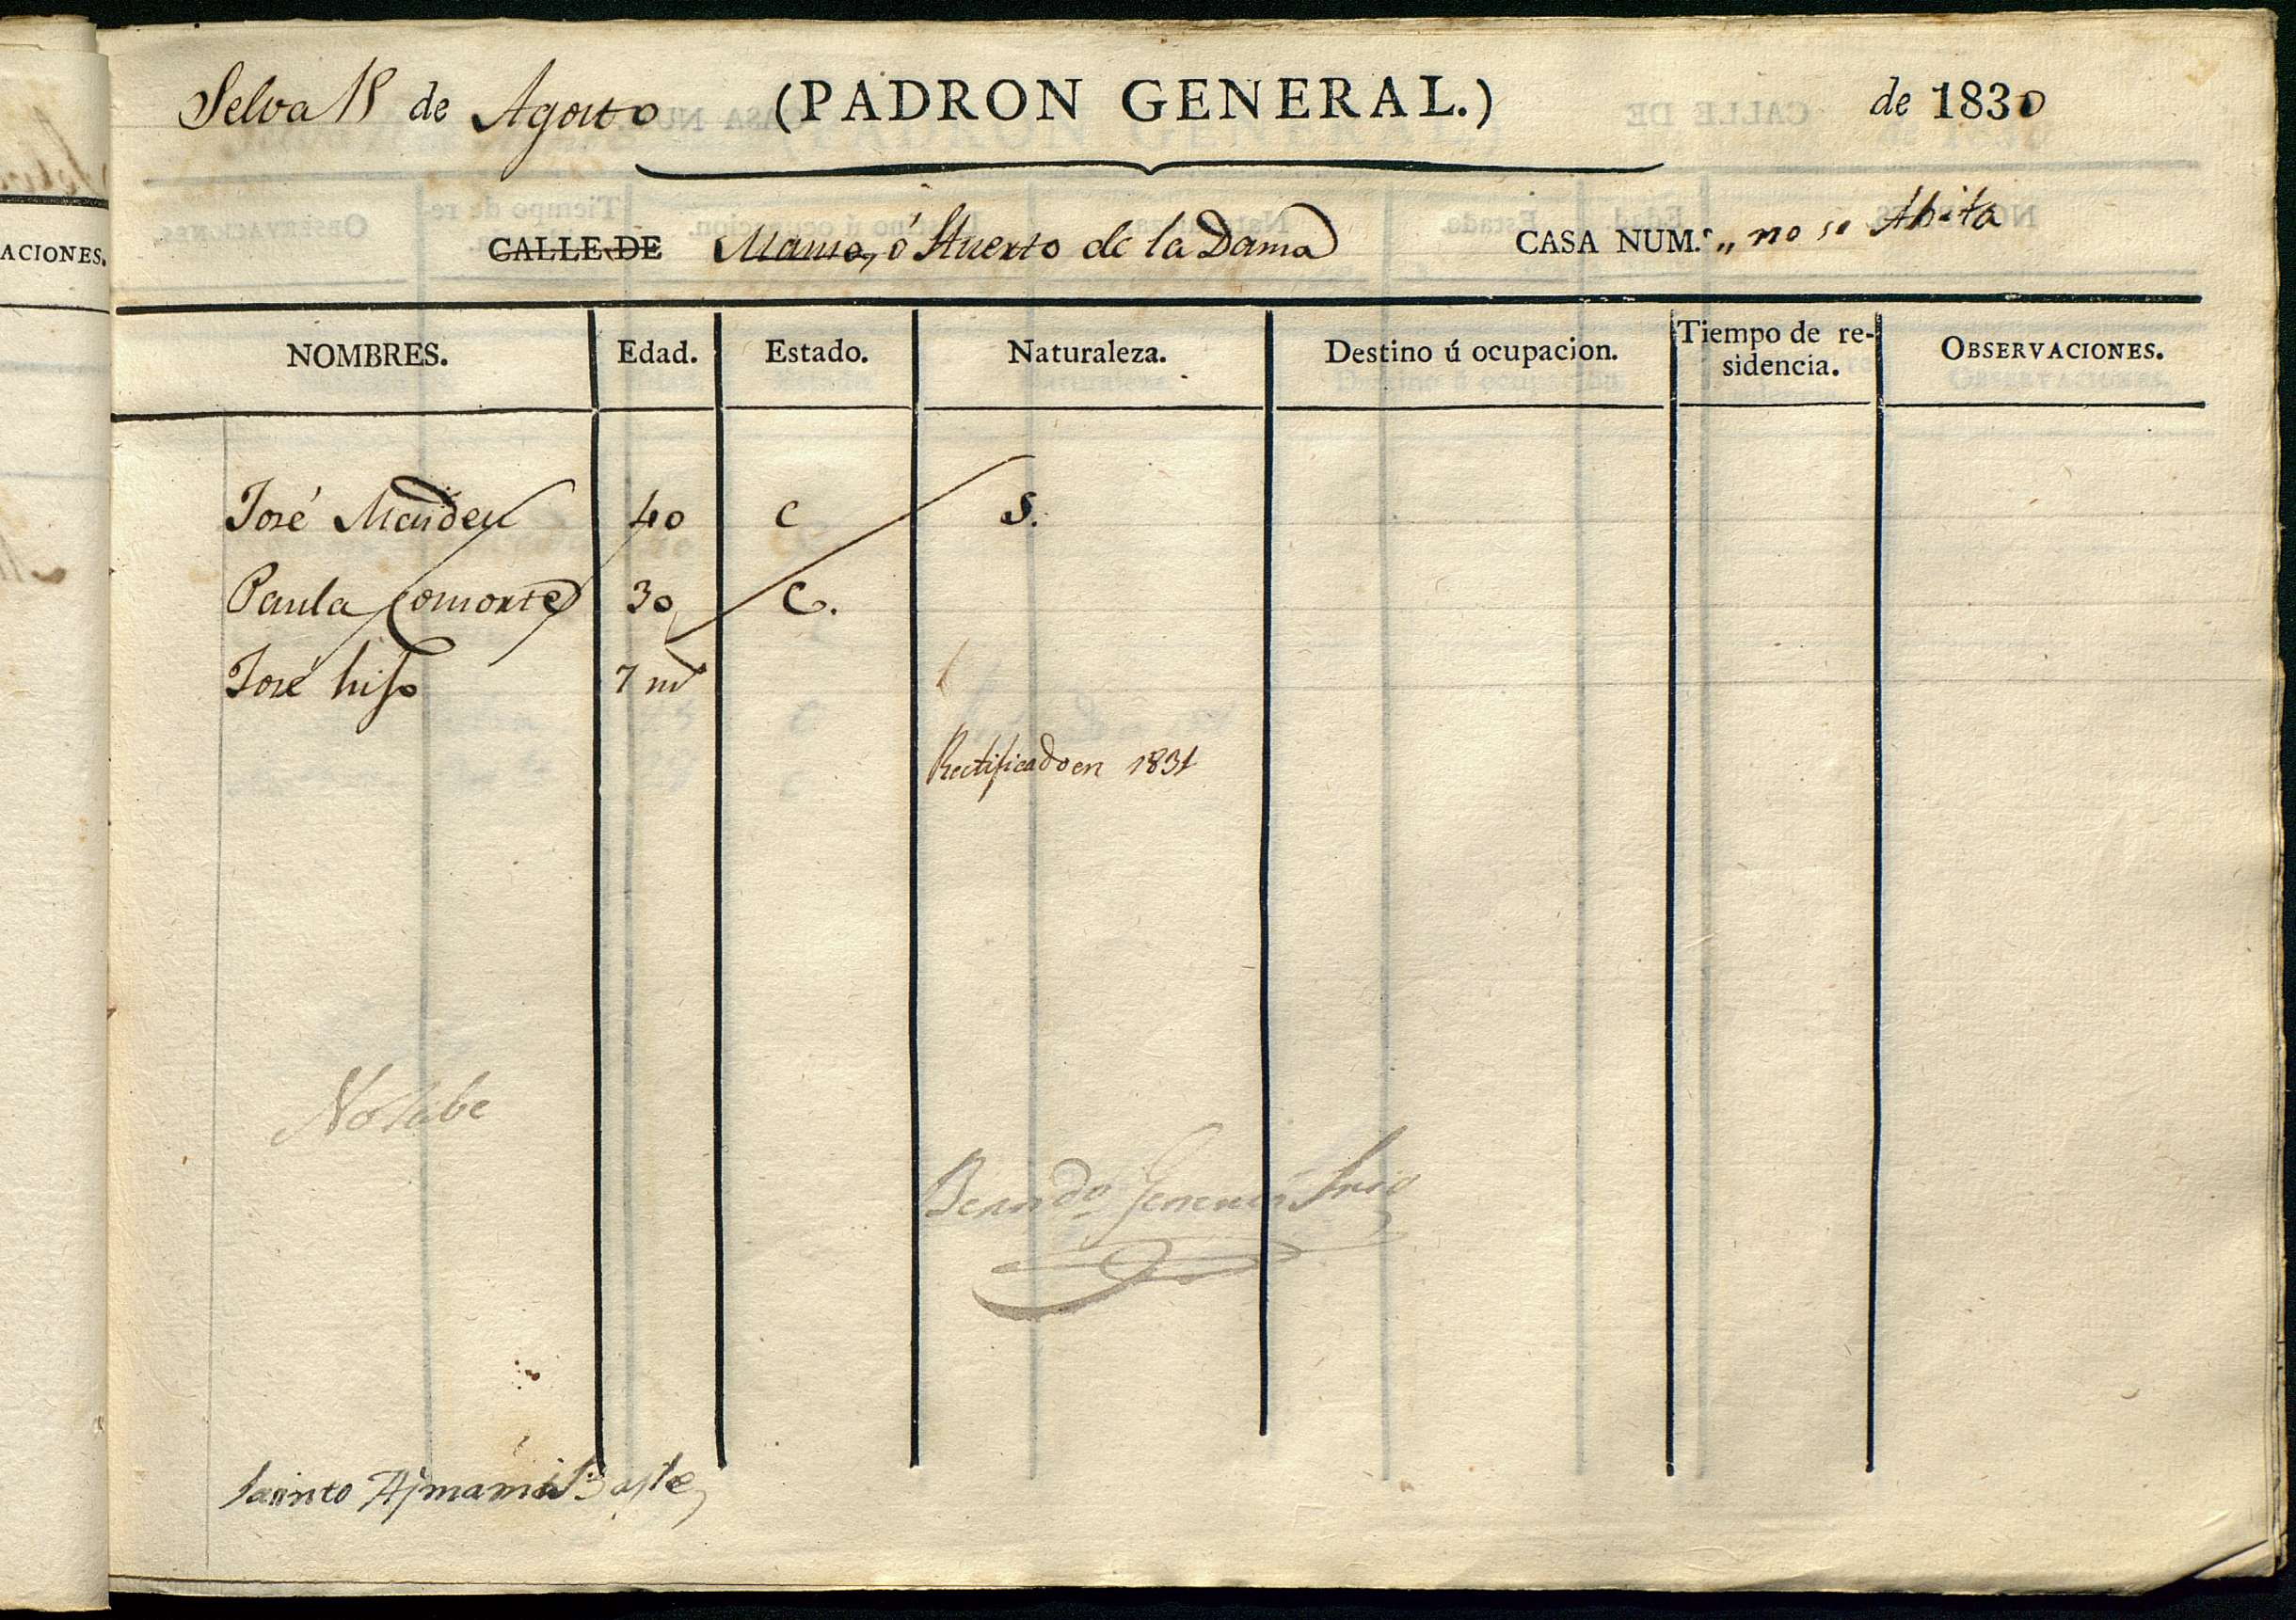 Selva 18 de Agosto (PADRON GENERAL.) de 1830
CALLE DE Manso, ó Huerto de la Dama CASA NUM.º „ no se Abita
ACIONES.
NOMBRES. Edad. Estado. Naturaleza. Destino ú ocupacion. Tiempo de re-
sidencia. OBSERVACIONES.
José 40 C S.
Paula consorte 30 C.
José hijo 7 ms
Rectificado en 1831
No sabe
Berndo Srio